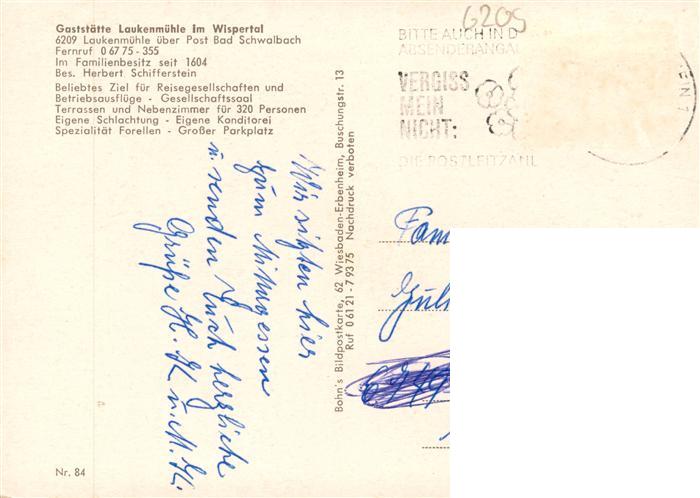 Gaststätte Laukenmühle im Wispertal
6209 Laukenmühle über Post Bad Schwalbach
Fernruf 0 67 75 - 355
Im Familienbesitz seit 1604
Bes. Herbert Schifferstein
Beliebtes Ziel für Reisegesellschaften und
Betriebsausflüge - Gesellschaftssaal
Terrassen und Nebenzimmer für 320 Personen
Eigene Schlachtung - Eigene Konditorei
Spezialität Forellen - Großer Parkplatz
Wir sitzen hier
zum Mittagessen
u. senden Euch herzliche
Grüße
Nr. 84
Bohn's Bildpostkarte, 62 Wiesbaden-Erbenheim, Buschungstr. 13
Ruf 0 61 21 - 7 93 75 Nachdruck verboten
6205
BITTE AUCH IN D
ABSENDERANGA
VERGISS
MEIN
NICHT:
DIE POSTLEITZAHL
Fam